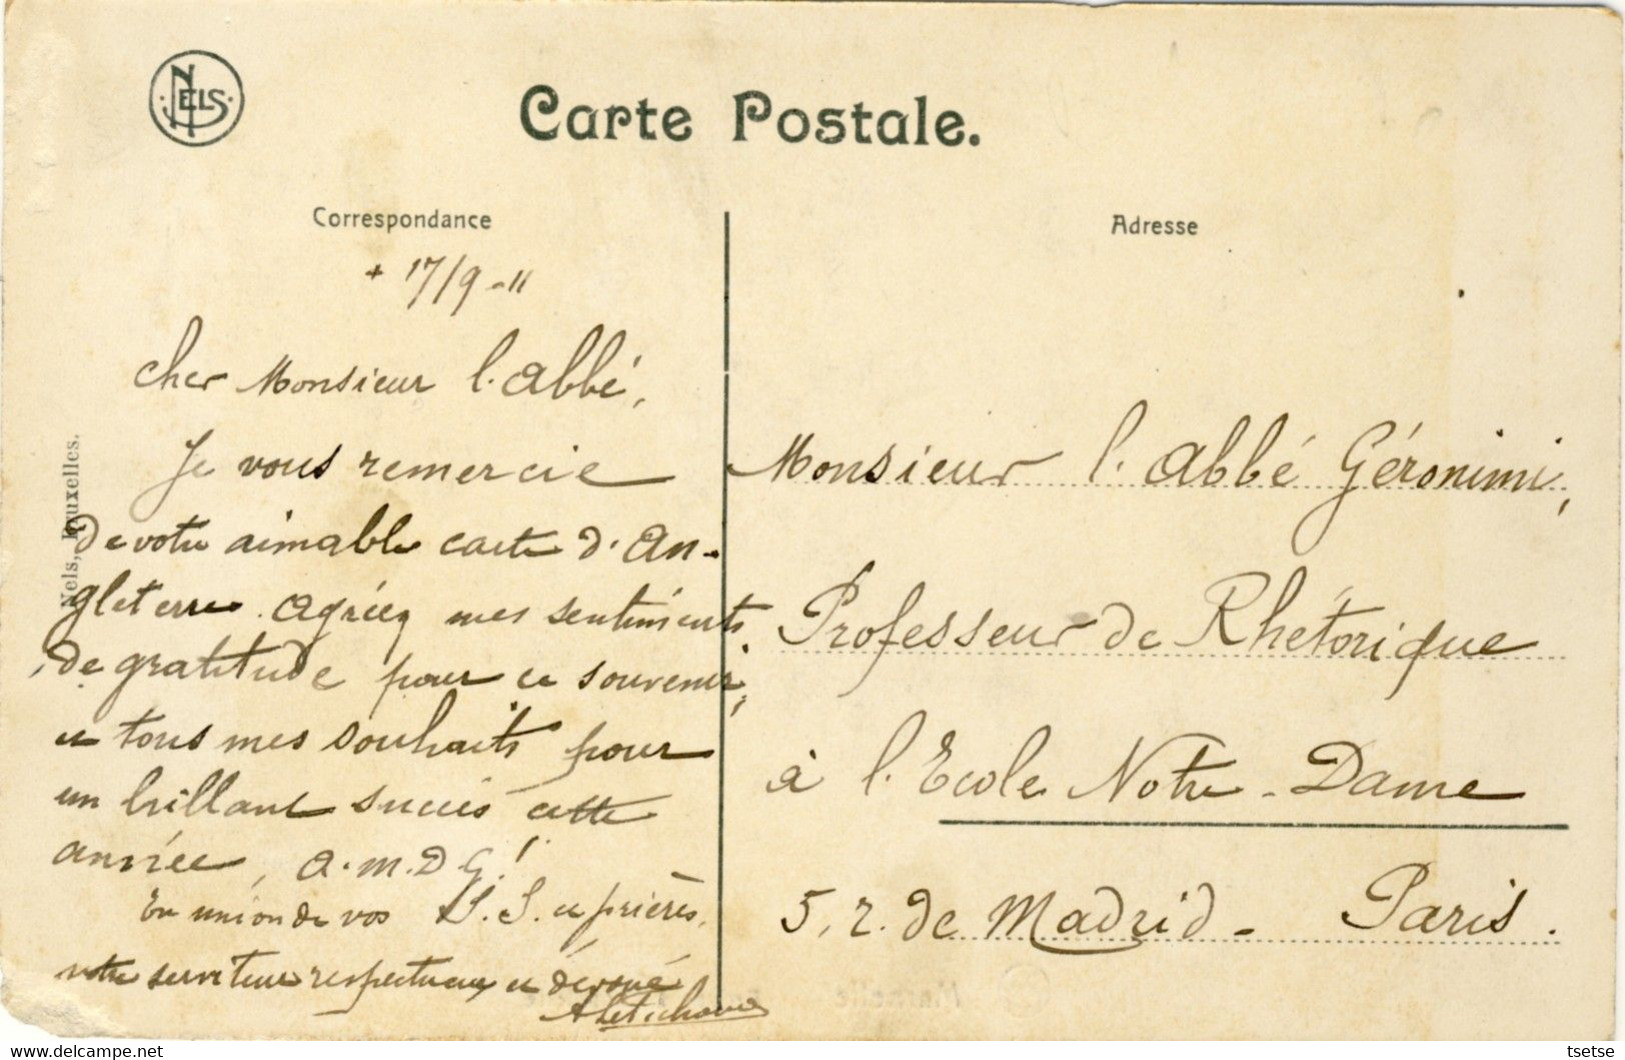 NELS
Carte Postale.
Correspondance
Adresse
+ 17/9 - 11
Cher Monsieur l'Abbé,
Je vous remercie
de votre aimable carte d'An-
gleterre. Agréez mes sentiments
de gratitude pour ce souvenir,
et tous mes souhaits pour
un brillant succès cette
année, A.M.D.G!
En union de vos S.S. et prières,
votre serviteur respectueux et dévoué
Nels, Bruxelles.
Monsieur l'Abbé Géronimi,
Professeur de Rhétorique
à l'Ecole Notre-Dame
5, r. de Madrid - Paris.
tsetse